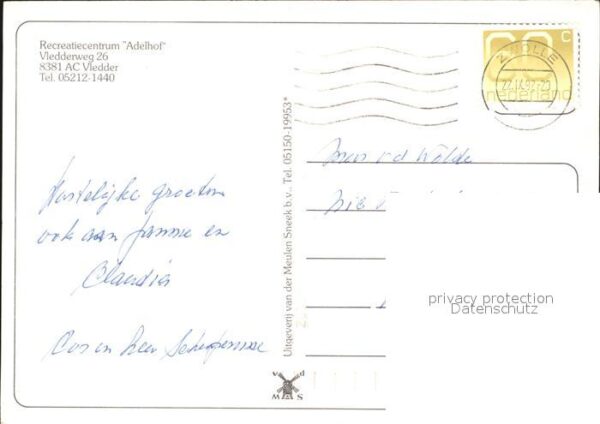 Recreatiecentrum "Adelhof"
Vledderweg 26
8381 AC Vledder
Tel. 05212-1440
60 c
nederland
ZWOLLE
Hartelijke groeten
ook aan fannie en
Claudia
Cos en heer
Uitgeverij van der Meulen Sneek b.v., Tel. 05150-19953*
v d
M S
v d Wolde
privacy protection
Datenschutz